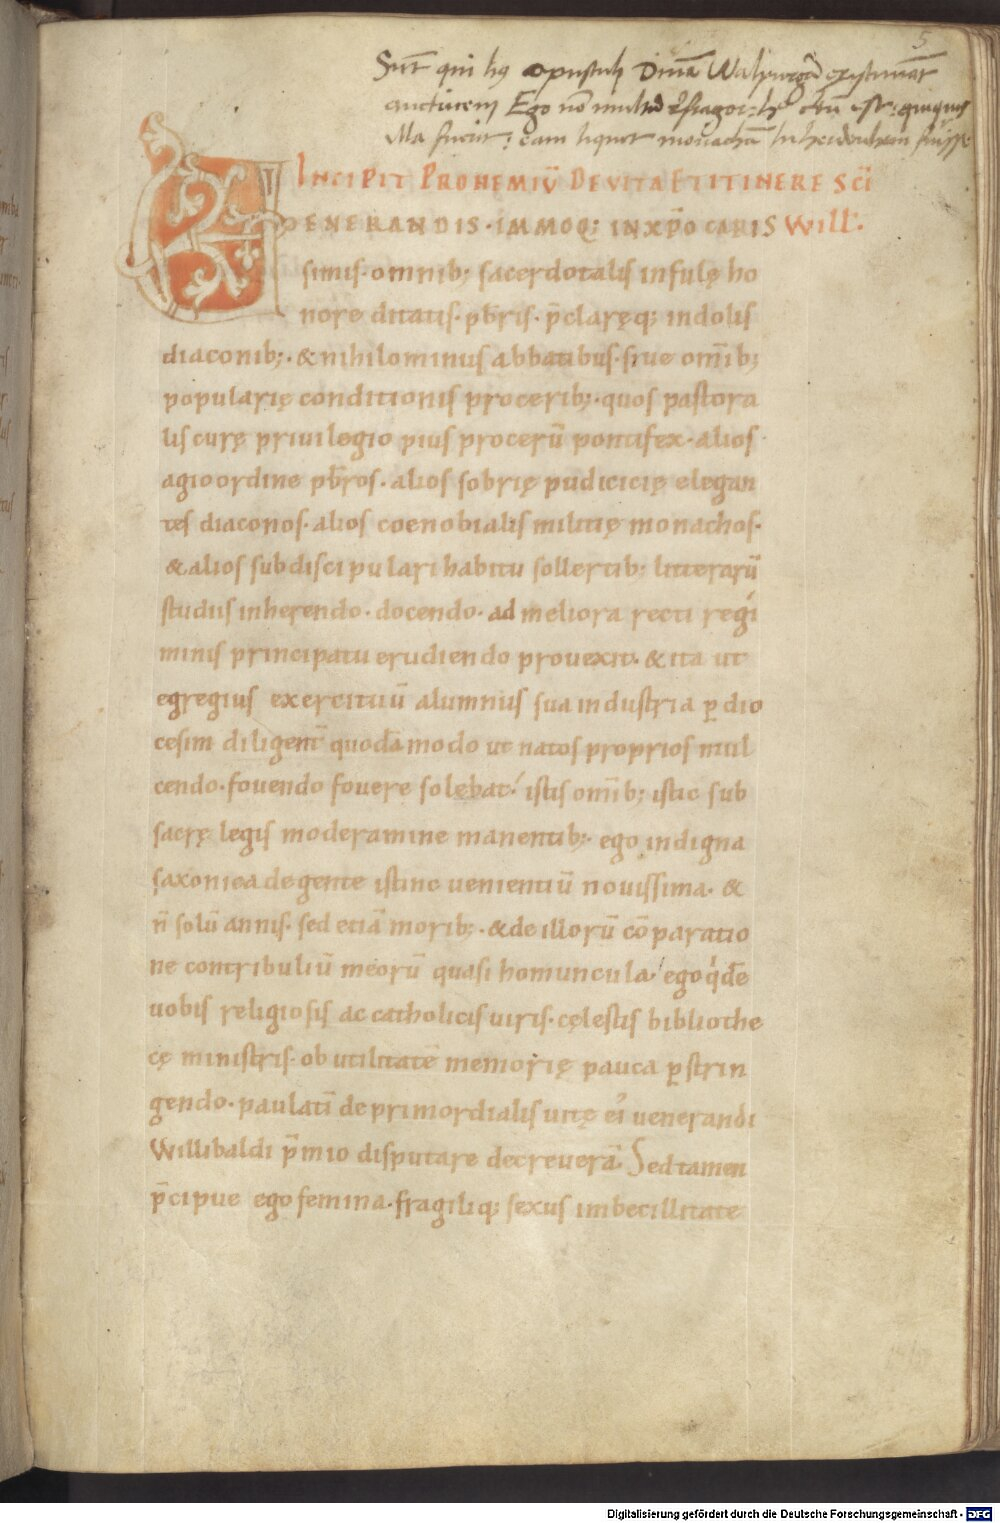 5
Sunt qui huius opusculi Divā Walpurgā existimāt
auctricem Ego nō multū refragor: certū est: quęquę
illa fuerit: eam liquet monachā in heidenheim fuisse
INCIPIT PROHEMIŪ DE VITA ET ITINERE SC̄I
VENERANDIS · IMMOQ; IN XP̄O CARIS WILL.
simis· omnib; sacerdotalis infulę ho
nore ditatis· pb̄ris· p̄claręq; indolis
diaconib;· & nihilominus abbatibus· siue om̄ib;
popularię conditionis procerib;· quos pastora
lis curę priuilegio pius procerū pontifex· alios
agio ordine pb̄ros· alios sobrię pudicicię elegan
tes diaconos· alios coenobialis militię monachos·
& alios sub discipulari habitu sollertib; litterarū
studiis inherendo· docendo· ad meliora recti regi
minis principatu erudiendo prouexit· & ita ut
egregius exercituū alumnus sua industria p̱ dio
cesim diligent̄ quodāmodo ut natos proprios mul
cendo· fouendo fouere solebat· istis om̄ib; istic sub
sacrę legis moderamine manentib;· ego indigna
saxonica de gente istinc uenientiū nouissima· &
n̄ solū annis· sed etiā morib;· & de illorū cōparatio
ne contribuliū meorū quasi homuncula· ego q'dē
uobis religiosis ac catholicis uiris· cęlestis bibliothe
cę ministris· ob utilitatē memorię pauca p̱strin
gendo· paulatī de primordialis uitę ei' uenerandi
Willibaldi p̄mio disputare decreuerā· Sed tamen
p̄cipue ego femina· fragiliq; sexus imbecillitate
Digitalisierung gefördert durch die Deutsche Forschungsgemeinschaft - DFG